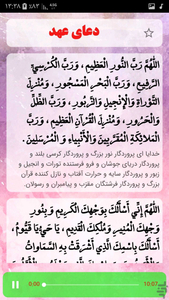 ۱۳:۳۸ ٪۸۳
دعای عهد
اللَّهُمَّ رَبَّ النُّورِ الْعَظِيمِ، وَرَبَّ الْكُرْسِيِّ
الرَّفِيعِ، وَرَبَّ الْبَحْرِ الْمَسْجُورِ، وَمُنْزِلَ
التَّوْرَاةِ وَالْإِنْجِيلِ وَالزَّبُورِ، وَرَبَّ الظِّلِّ
وَالْحَرُورِ، وَمُنْزِلَ الْقُرْآنِ الْعَظِيمِ، وَرَبَّ
الْمَلَائِكَةِ الْمُقَرَّبِينَ وَالْأَنْبِيَاءِ وَالْمُرْسَلِينَ.
خدایا ای پروردگار نور بزرگ و پروردگار کرسی بلند و
پروردگار دریای جوشان و فرو فرستنده تورات و انجیل و
زبور و پروردگار سایه و حرارت آفتاب و نازل کننده قرآن
بزرگ و پروردگار فرشتگان مقرب و پیامبران و رسولان.
اللَّهُمَّ إِنِّي أَسْأَلُكَ بِوَجْهِكَ الْكَرِيمِ، وَبِنُورِ
وَجْهِكَ الْمُنِيرِ، وَمُلْكِكَ الْقَدِيمِ، يَا حَيُّ يَا قَيُّومُ،
أَسْأَلُكَ بِاسْمِكَ الَّذِي أَشْرَقَتْ بِهِ السَّمَاوَاتُ
0:00 10:07